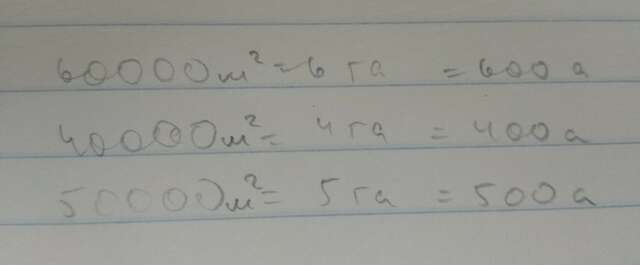 60000м²=6 га =600 а
40000м²= 4 га = 400 а
50000м²= 5 га = 500 а